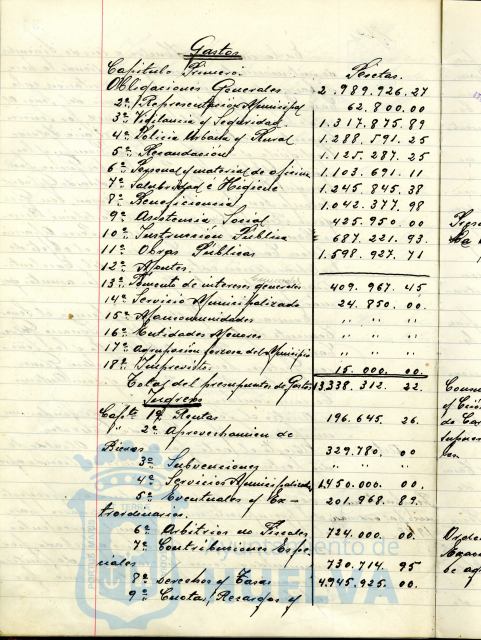 Gastos
Capitulo Primero: Pesetas.
Obligaciones Generales 2.989.926.27
2º Representación Municipal 62.800.00
3º Vigilancia y Seguridad 1.317.875.89
4º Policia Urbana y Rural 1.288.591.25
5º Recaudación 1.125.287.25
6º Personal y material de oficina 1.103.691.11
7º Salubridad é Higiene 1.245.845.38
8º Beneficiencia 1.042.377.98
9º Asistencia Social 425.950.00
10º Instrucción Pública 687.221.93.
11º Obras Públicas 1.598.927.71
12º Montes.
13º Fomento de intereses generales 409.967.45
14º Servicio Municipalizado 24.850.00
15º Mancomunidades " " "
16º Entidades Menores " " "
17º Agrupación forzosa del Municipio
18º Imprevistos 15.000.00.
Total del presupuesto de Gastos 13.338.312.22.
Ingresos
Capto 1º Rentas 196.645.26.
" 2º Aprovechamien de
Bienes 329.780.00
3º Subvenciones " " "
4º Servicios Municipalizados 1.450.000.00.
5º Eventuales y Ex-
traordinarios. 201.968.89.
6º Arbitrios no Fiscales 724.000.00.
7º Contribuciones Espe-
ciales 730.714.95
8º Derechos y Tasas 4.945.925.00
9º Cuotas, Recargos y